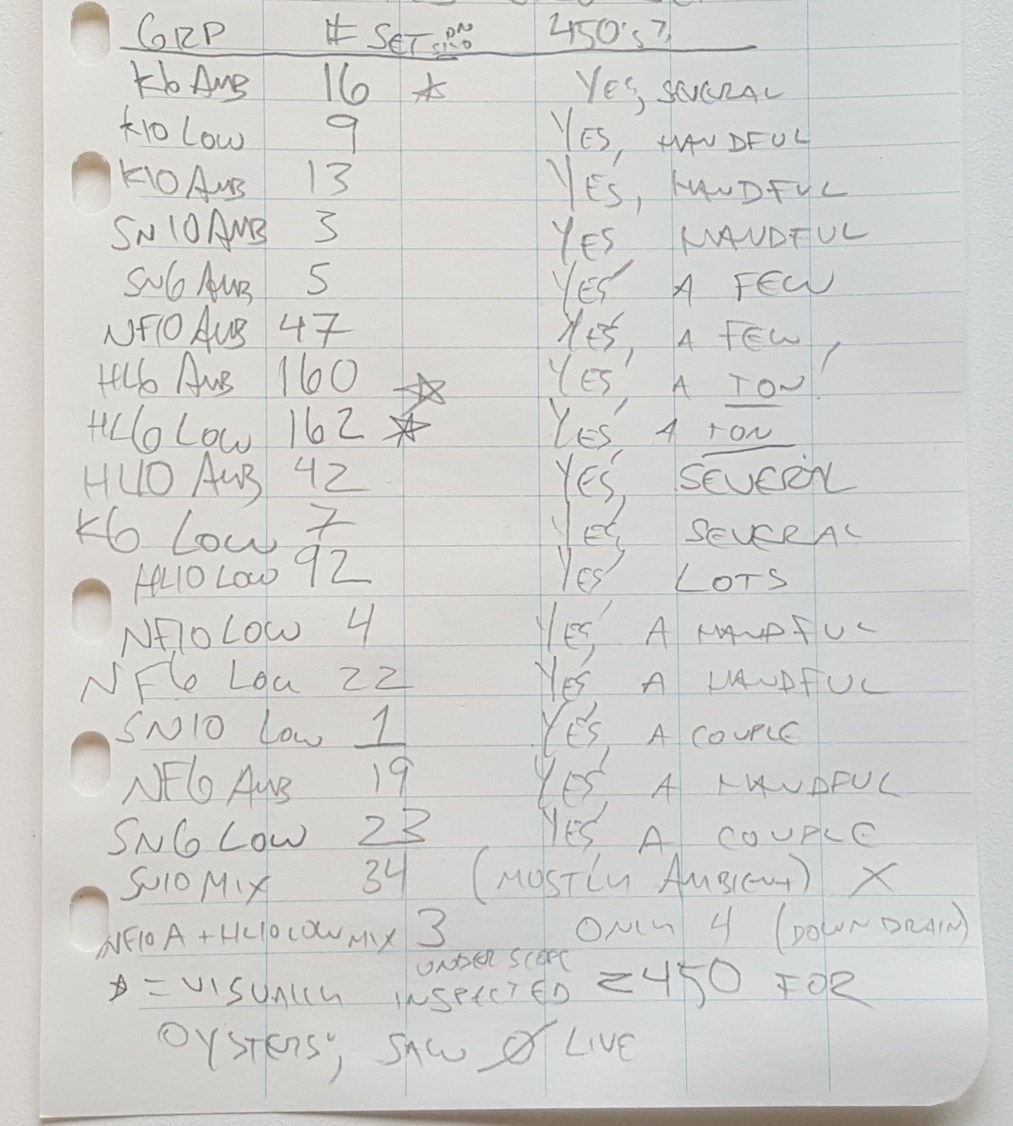 GRP # SET ON SILO 450's?
K6 AMB 16 ☆ YES, SEVERAL
K10 LOW 9 YES, HANDFUL
K10 AMB 13 YES, HANDFUL
SN10 AMB 3 YES HANDFUL
SN6 AMB 5 YES A FEW
NF10 AMB 47 YES, A FEW
HL6 AMB 160 ☆ YES, A TON!
HL6 LOW 162 ☆ YES, A TON
HL10 AMB 42 YES, SEVERAL
K6 LOW 7 YES, SEVERAL
HL10 LOW 92 YES LOTS
NF10 LOW 4 YES, A HANDFUL
NF6 LOW 22 YES A HANDFUL
SN10 LOW 1 YES, A COUPLE
NF6 AMB 19 YES, A HANDFUL
SN6 LOW 23 YES A COUPLE
SN10 MIX 34 (MOSTLY AMBIENT) X
NF10 A + HL10 LOW MIX 3 ONLY 4 (DOWN DRAIN)
☆ = VISUALLY INSPECTED UNDER SCOPE ≥450 FOR
OYSTERS; SAW Ø LIVE